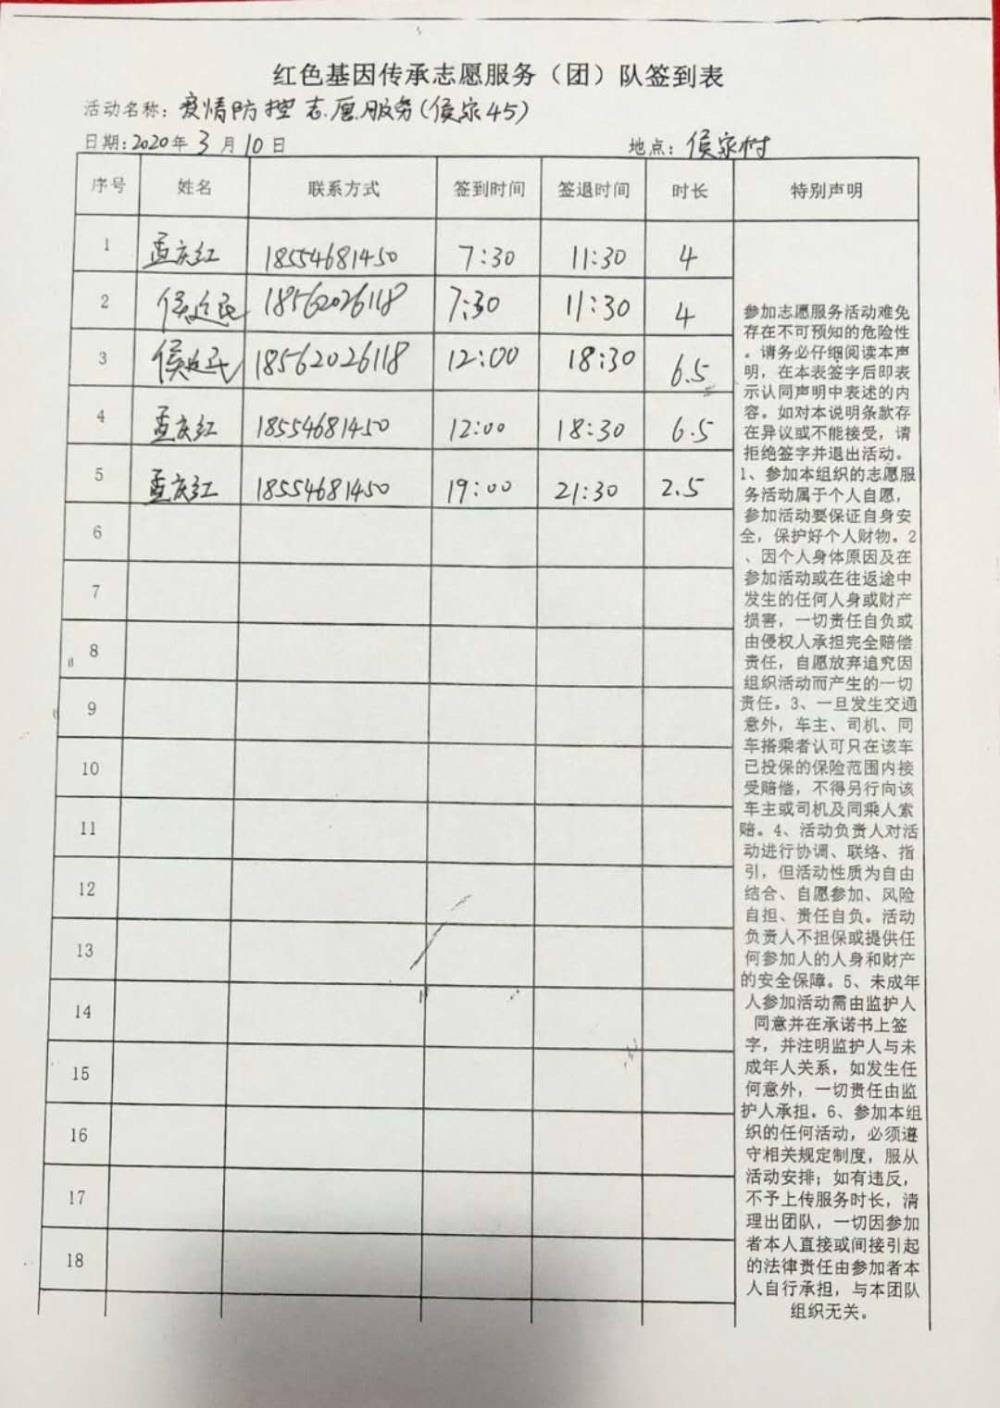 红色基因传承志愿服务（团）队签到表
活动名称：疫情防控志愿服务(侯家45)
日期：2020年3月10日 地点：侯家村
序号 姓名 联系方式 签到时间 签退时间 时长 特别声明
1 孟庆红 18554681450 7:30 11:30 4
2 侯廷民 18562026118 7:30 11:30 4
3 侯廷民 18562026118 12:00 18:30 6.5
4 孟庆红 18554681450 12:00 18:30 6.5
5 孟庆红 18554681450 19:00 21:30 2.5
6
7
8
9
10
11
12
13
14
15
16
17
18
参加志愿服务活动难免
存在不可预知的危险性
。请务必仔细阅读本声
明，在本表签字后即表
示认同声明中表述的内
容。如对本说明条款存
在异议或不能接受，请
拒绝签字并退出活动。
1、参加本组织的志愿服
务活动属于个人自愿，
参加活动要保证自身安
全，保护好个人财物。2
、因个人身体原因及在
参加活动或在往返途中
发生的任何人身或财产
损害，一切责任自负或
由侵权人承担完全赔偿
责任，自愿放弃追究因
组织活动而产生的一切
责任。3、一旦发生交通
意外，车主、司机、同
车搭乘者认可只在该车
已投保的保险范围内接
受赔偿，不得另行向该
车主或司机及同乘人索
赔。4、活动负责人对活
动进行协调、联络、指
引，但活动性质为自由
结合、自愿参加、风险
自担、责任自负。活动
负责人不担保或提供任
何参加人的人身和财产
的安全保障。5、未成年
人参加活动需由监护人
同意并在承诺书上签
字，并注明监护人与未
成年人关系，如发生任
何意外，一切责任由监
护人承担。6、参加本组
织的任何活动，必须遵
守相关规定制度，服从
活动安排；如有违反，
不予上传服务时长，清
理出团队，一切因参加
者本人直接或间接引起
的法律责任由参加者本
人自行承担，与本团队
组织无关。